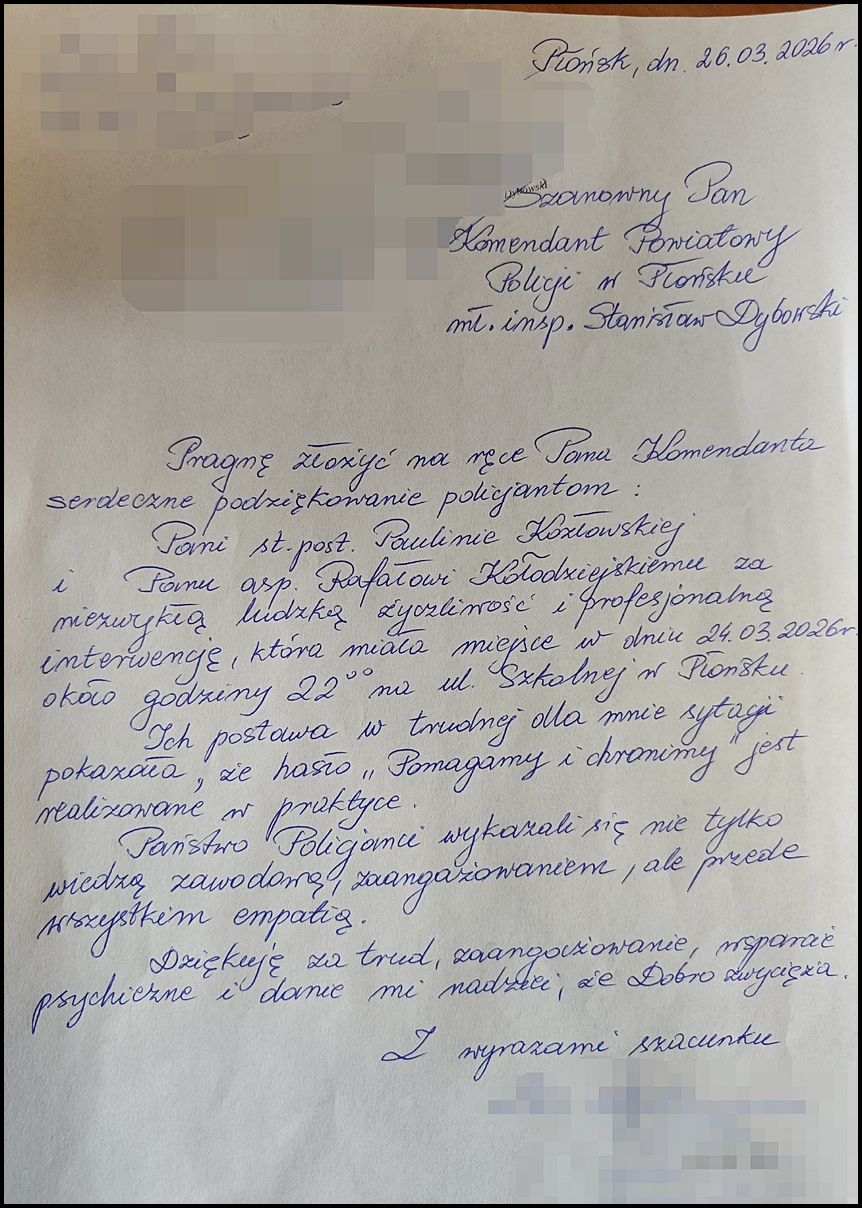 Płońsk, dn. 26.03.2026 r.
Dybowski
Szanowny Pan
Komendant Powiatowy
Policji w Płońsku
mł. insp. Stanisław Dybowski
Pragnę złożyć na ręce Pana Komendanta
serdeczne podziękowanie policjantom :
Pani st. post. Paulinie Kozłowskiej
i Panu asp. Rafałowi Kołodziejskiemu za
niezwykłą ludzką życzliwość i profesjonalną
interwencję, która miała miejsce w dniu 24.03.2026r.
około godziny 22⁰⁰ na ul. Szkolnej w Płońsku.
Ich postawa w trudnej dla mnie sytacji
pokazała, że hasło „Pomagamy i chronimy" jest
realizowane w praktyce.
Państwo Policjanci wykazali się nie tylko
wiedzą zawodową, zaangażowaniem, ale przede
wszystkim empatią.
Dziękuję za trud, zaangażowanie, wsparcie
psychiczne i danie mi nadziei, że Dobro zwycięża.
Z wyrazami szacunku